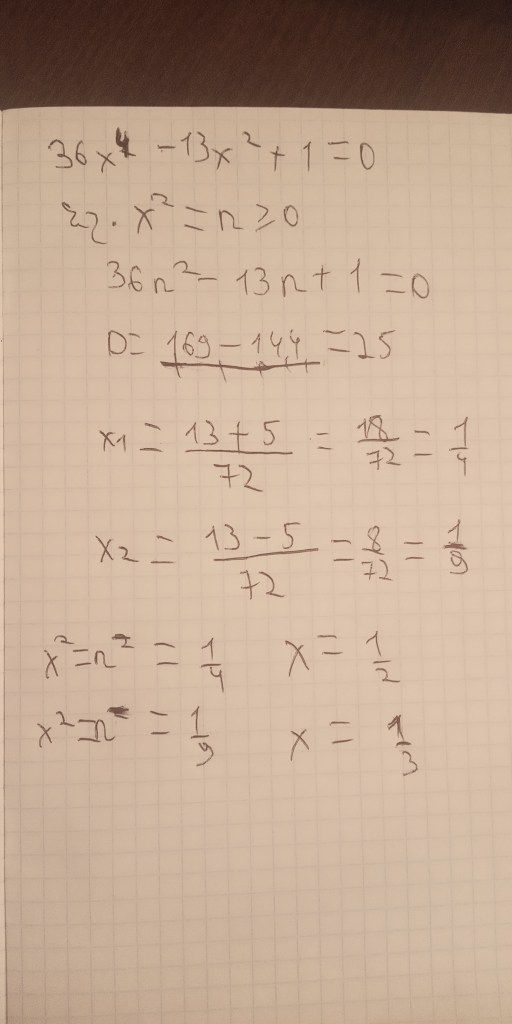 36x⁴ - 13x² + 1 = 0
x² = n ≥ 0
36n² - 13n + 1 = 0
D = 169 - 144 = 25
x1 = 13 + 5 / 72 = 18/72 = 1/4
x2 = 13 - 5 / 72 = 8/72 = 1/9
x² = n = 1/4 x = 1/2
x² = n = 1/9 x = 1/3